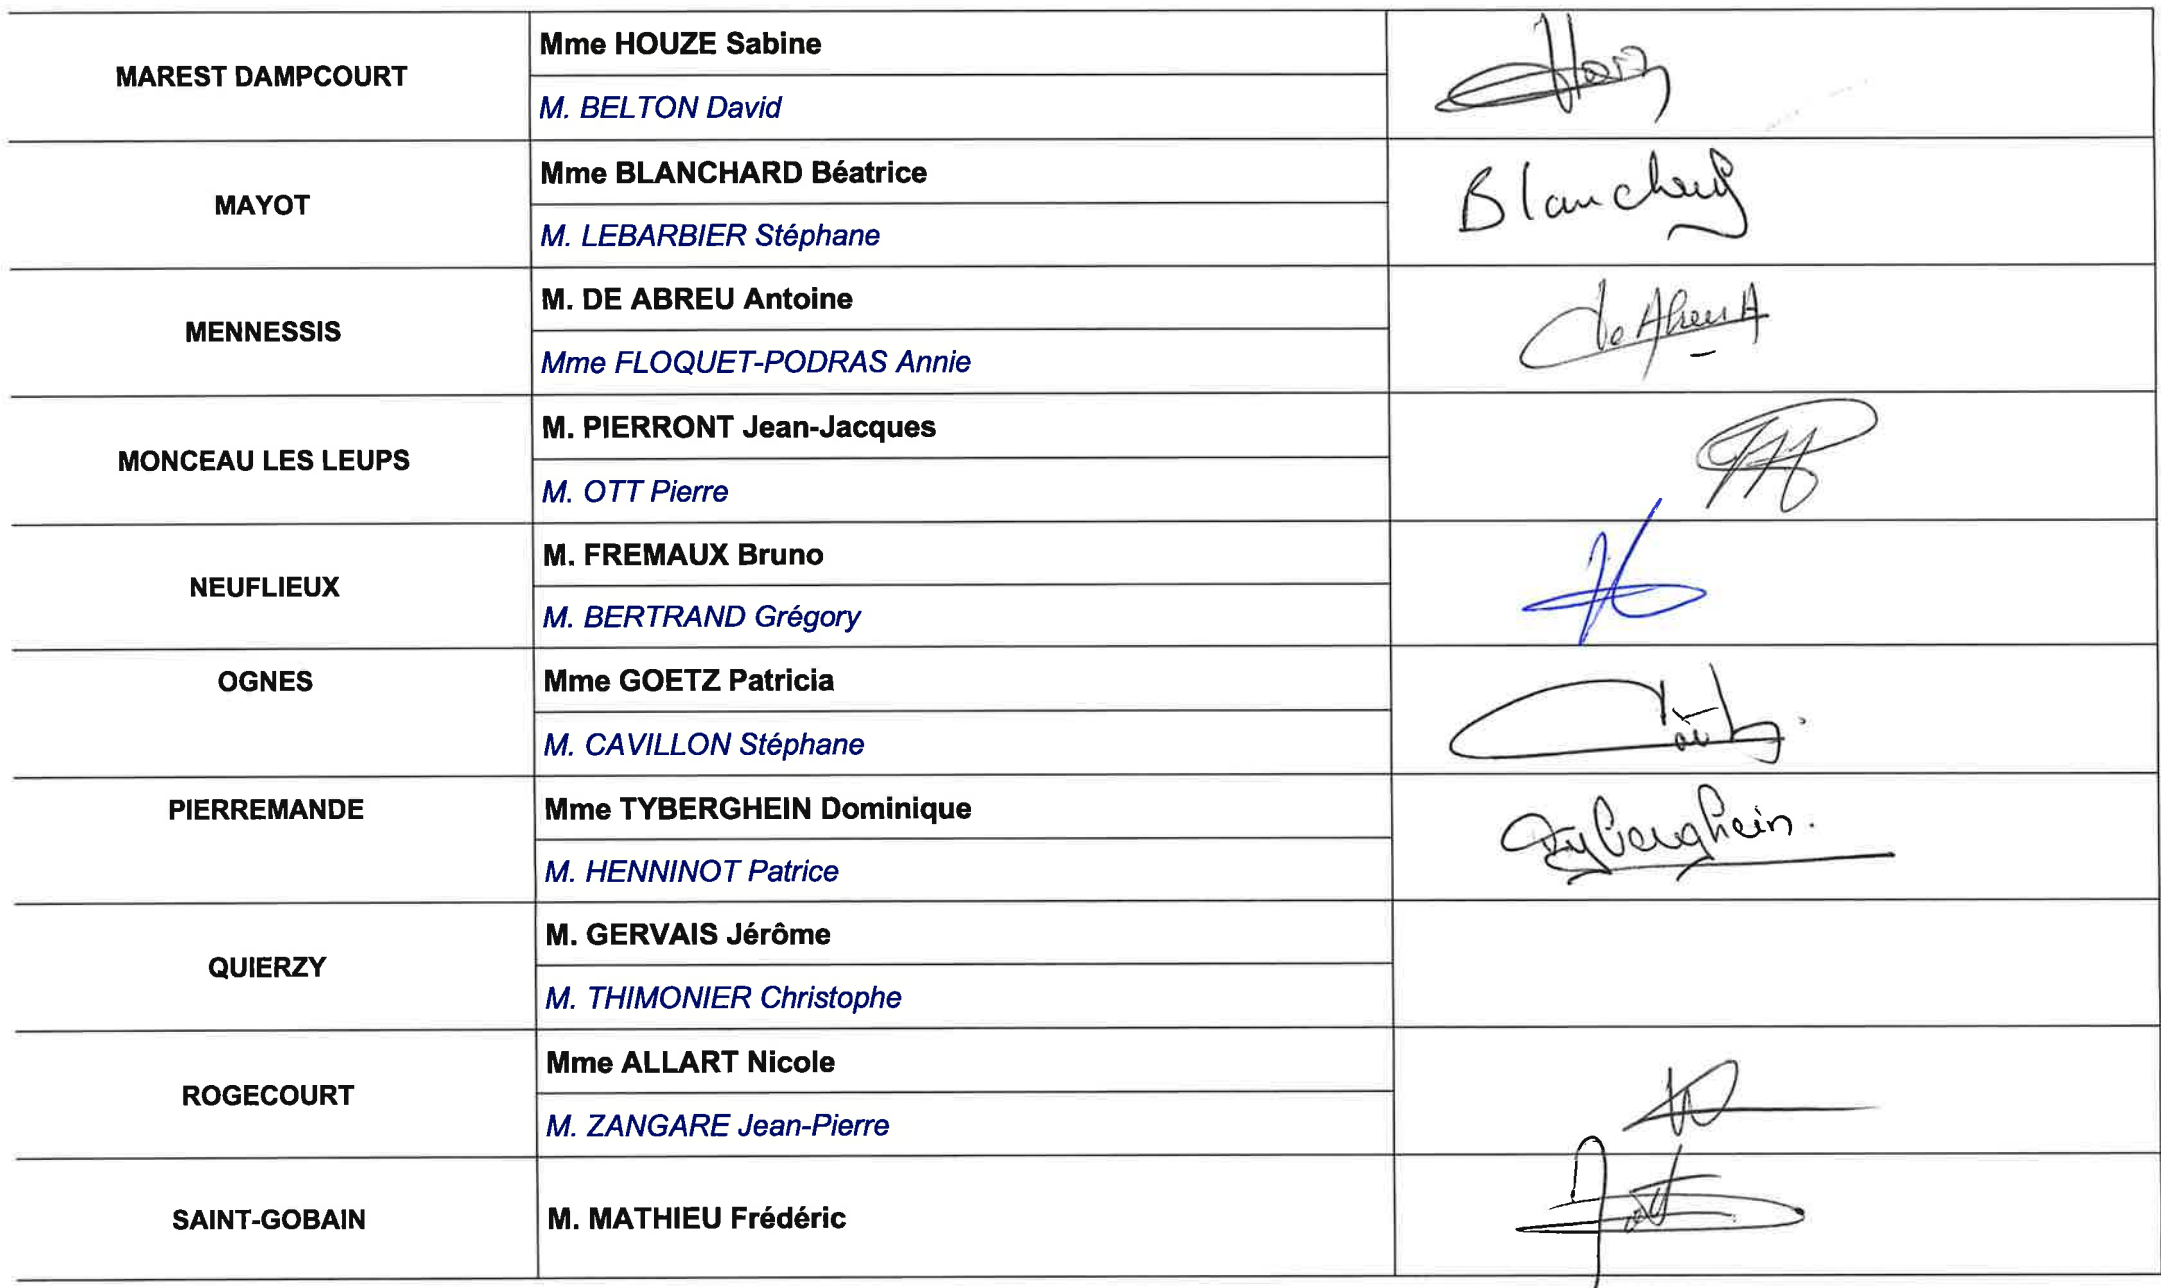 MAREST DAMPCOURT
Mme HOUZE Sabine
M. BELTON David
MAYOT
Mme BLANCHARD Béatrice
M. LEBARBIER Stéphane
Blanchard
MENNESSIS
M. DE ABREU Antoine
Mme FLOQUET-PODRAS Annie
De Abreu A
MONCEAU LES LEUPS
M. PIERRONT Jean-Jacques
M. OTT Pierre
NEUFLIEUX
M. FREMAUX Bruno
M. BERTRAND Grégory
OGNES
Mme GOETZ Patricia
M. CAVILLON Stéphane
PIERREMANDE
Mme TYBERGHEIN Dominique
M. HENNINOT Patrice
Tyberghein.
QUIERZY
M. GERVAIS Jérôme
M. THIMONIER Christophe
ROGECOURT
Mme ALLART Nicole
M. ZANGARE Jean-Pierre
SAINT-GOBAIN
M. MATHIEU Frédéric